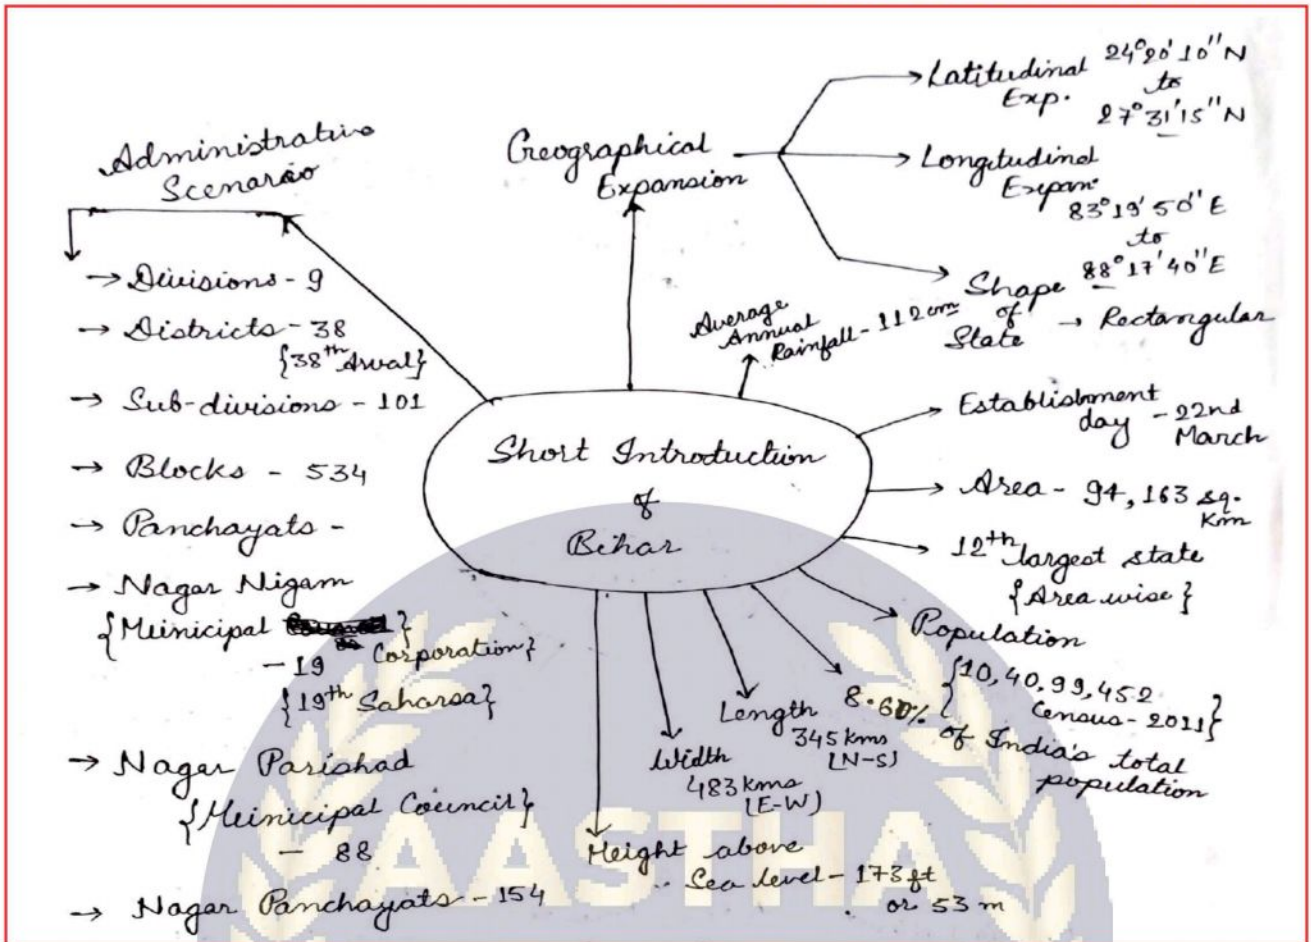 Administrative
Scenario
→ Divisions - 9
→ Districts - 38
{38th Arwal}
→ Sub-divisions - 101
→ Blocks - 534
→ Panchayats -
→ Nagar Nigam
{Municipal Corporation}
- 19
{19th Saharsa}
→ Nagar Parishad
{Municipal Council}
- 88
→ Nagar Panchayats - 154
Geographical
Expansion
Latitudinal
Exp.
24°20'10"N
to
27°31'15"N
Longitudinal
Expan.
83°19'50"E
to
88°17'40"E
Shape
of
State → Rectangular
Average
Annual
Rainfall - 112 cm
Short Introduction
of
Bihar
Establishment
day - 22nd
March
Area - 94,163 sq.
km
12th largest state
{Area wise}
Population
{10,40,99,452
Census - 2011}
8.60%
of India's total
population
Length
345 kms
(N-S)
Width
483 kms
(E-W)
Height above
Sea level - 173 ft
or 53 m
AASTHA